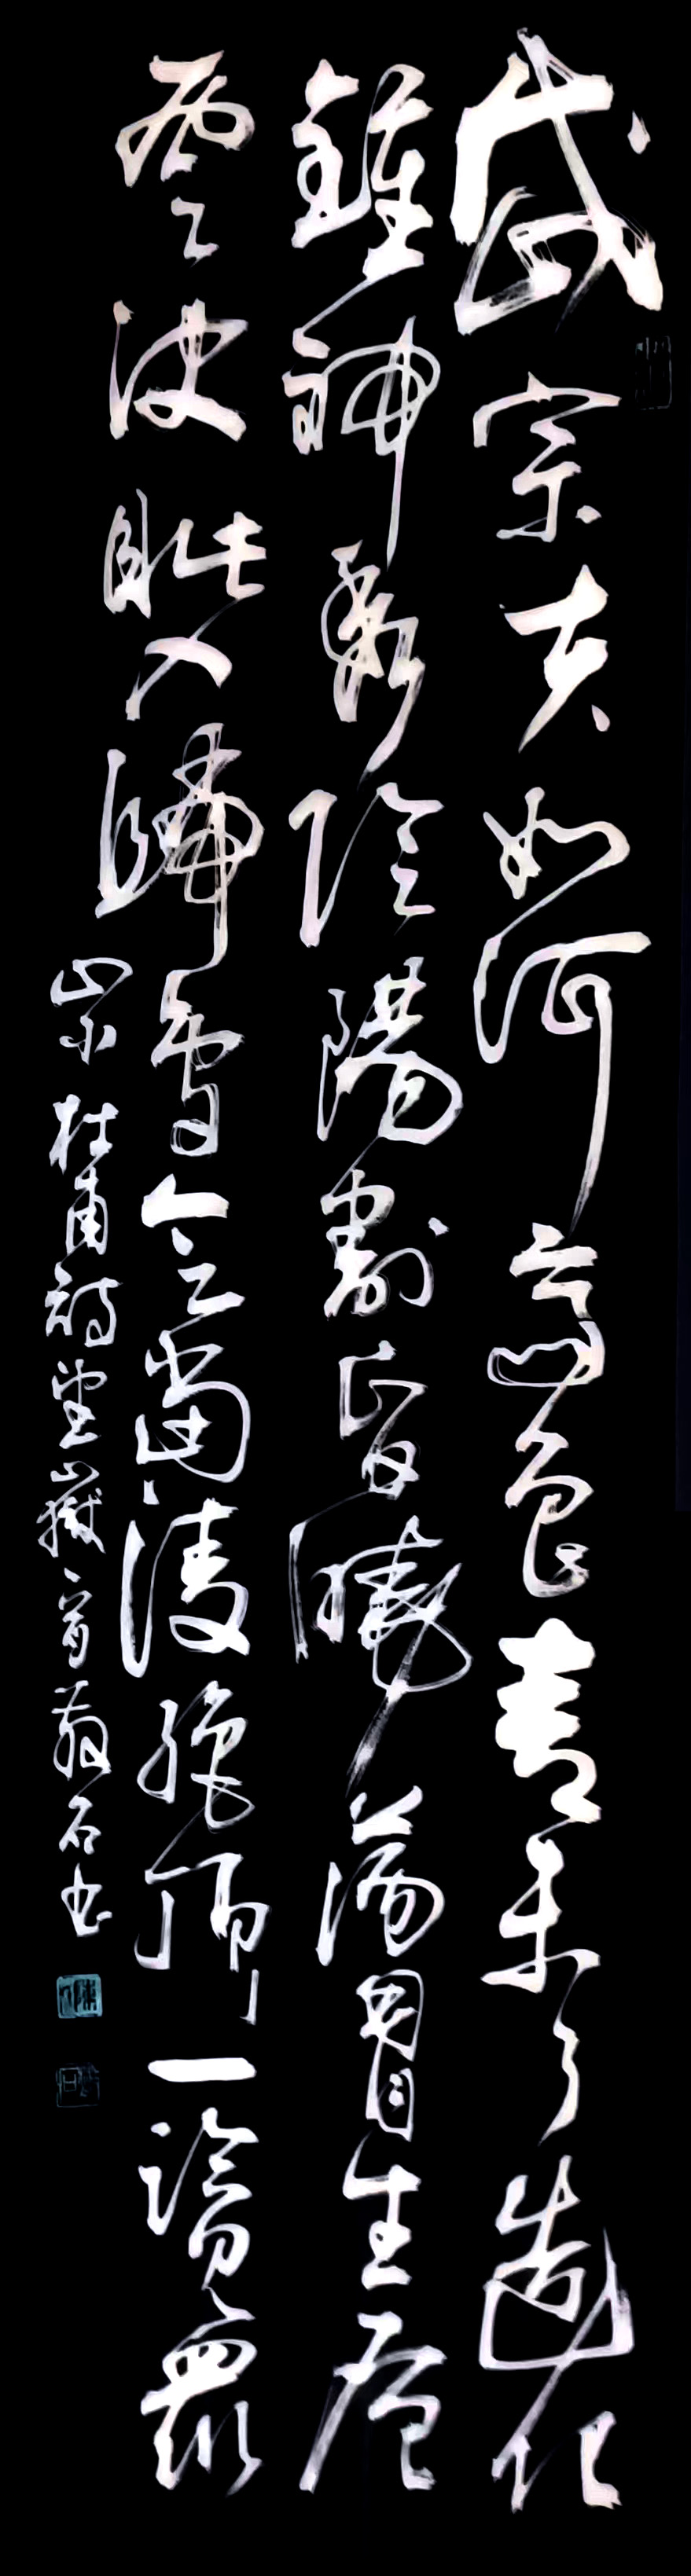 岱宗夫如何齊魯青未了造化
鍾神秀陰陽割昏曉蕩胷生層
雲決眦入歸鳥會當凌絕頂一覽眾
山小 杜甫詩望嶽一首 石書